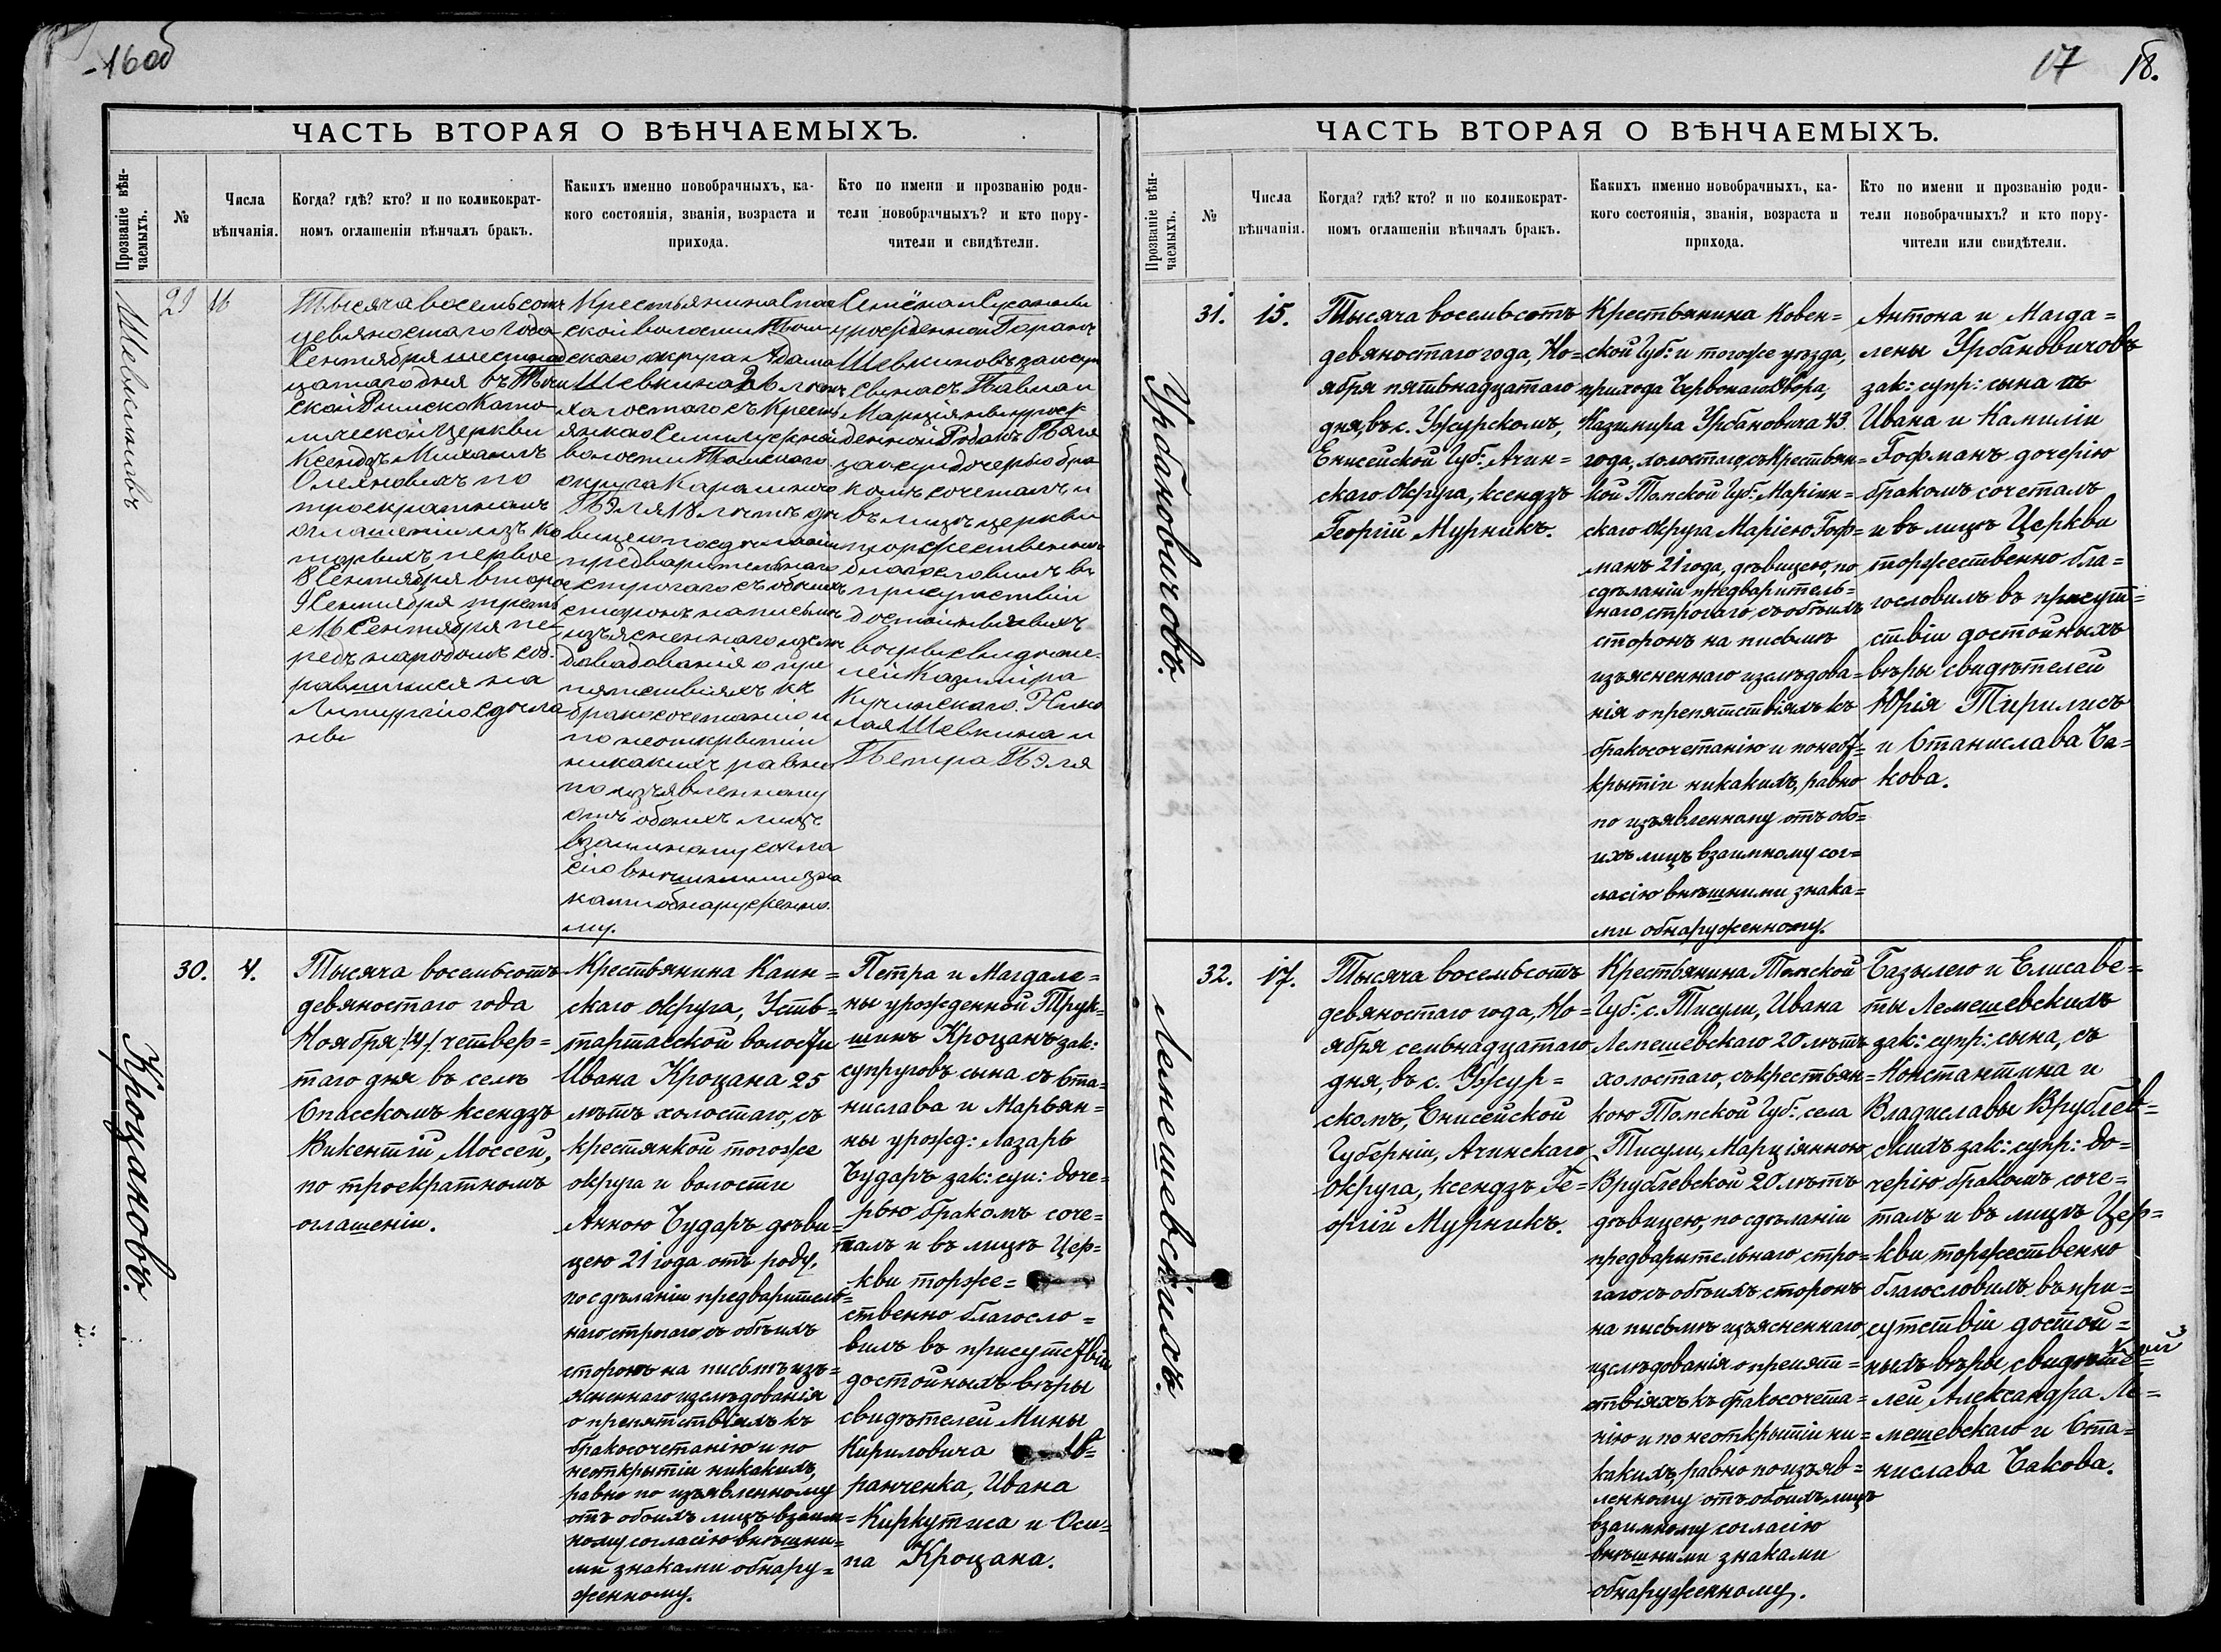 -16об
ЧАСТЬ ВТОРАЯ О ВѢНЧАЕМЫХЪ.
Прозваніе вѣн-
чаемыхъ.
№
Числа
вѣнчанія.
Когда? гдѣ? кто? и по коликократ-
номъ оглашеніи вѣнчалъ бракъ.
Какихъ именно новобрачныхъ, ка-
кого состоянія, званія, возраста и
прихода.
Кто по имени и прозванію роди-
тели новобрачныхъ? и кто пору-
чители и свидѣтели.
29
16
Тысяча восемьсотъ
девяностаго года
Сентября шестнад
цатаго дня въ Том
ской Римско Като
лической Церкви
Ксендзъ Михаилъ
Олехновичъ по
троекратномъ
оглашеніи изъ ко
торыхъ первое
8 Сентября второе
9 Сентября треть
е 16 Сентября пе-
редъ народомъ соб-
равшимся на
Литургію сдѣла
ны
Крестьянина Спас
ской волости Том
скаго округа Адама
Шевкина 26 лѣтъ
холостаго съ Кресть
янкою Семилужной
волости Томскаго
округа Каролиною
Пэля 18 лѣтъ дѣ
вицею по сдѣланіи
предварительнаго
строгаго съ обоихъ
сторонъ на письмѣ
изъясненнаго изслѣ
дованія о пре
пятствіяхъ къ
бракосочетанію и
по неоткрытіи
никакихъ равно
по изъявленному
отъ обоихъ лицъ
взаимному согла
сію внѣшними зна
ками обнаруженно-
му.
Семёна и Сусанны
урожденной
Шевкиновъ зак суп
сына съ Павла и
Марціянны урож
денной Пэля
зак суп дочерью бра
комъ сочеталъ и
въ лицѣ церкви
торжественно
благословилъ въ
присутствіи
достойныхъ
вѣры свидѣте-
лей Казиміра
Кучинскаго. Нико
лая Шевкина и
Петра Пэля
30.
4.
Крощановъ.
Тысяча восемьсотъ
девяностаго года
Ноября /4/ четвер=
таго дня въ селѣ
Спасскомъ Ксендзъ
Викентій Моссей,
по троекратномъ
оглашеніи.
Крестьянина Каин=
скаго округа, Усть=
тартасской волости
Ивана Кроцана 25
лѣтъ холостаго, съ
крестянкой тогоже
округа и волости
Анною Бударъ дѣви=
цею 21 года отъ роду,
по сдѣланіи предваритель=
наго строгаго съ обѣихъ
сторонъ на письмѣ изъ=
ясненнаго изслѣдованія
о препятствіяхъ къ
бракосочетанію и по
неоткрытіи никакихъ,
равно по изъявленному
отъ обоихъ лицъ взаим=
ному согласію внѣшни=
ми знаками обнару=
женному.
Петра и Магдале=
ны урожденной Трук=
шинъ Кроцанъ зак:
супруговъ сына съ Ста=
нислава и Марьян=
ны урожд: Лазарь
Бударъ зак: суп: доче=
рью бракомъ соче=
талъ и въ лицѣ Цер=
кви торже=
ственно благосло=
вилъ въ присутствіи
достойныхъ вѣры
свидѣтелей Мины
Кириловича Ав=
ранченка, Ивана
Киркутиса и Оси=
па Кроцана.
17
18.
ЧАСТЬ ВТОРАЯ О ВѢНЧАЕМЫХЪ.
Прозваніе вѣн-
чаемыхъ.
№
Числа
вѣнчанія.
Когда? гдѣ? кто? и по коликократ-
номъ оглашеніи вѣнчалъ бракъ.
Какихъ именно новобрачныхъ, ка-
кого состоянія, званія, возраста и
прихода.
Кто по имени и прозванію роди-
тели новобрачныхъ? и кто пору-
чители или свидѣтели.
Урбановичовъ.
31.
15.
Тысяча восемьсотъ
девяностаго года, Но=
ября пятьнадцатаго
дня, въ с. Ужурскомъ,
Енисейской Губ: Ачин=
скаго Округа, ксендзъ
Георгій Мурникъ.
Крестьянина Ковен=
ской Губ: и тогоже уѣзда,
прихода Червонаго Двора,
Казимира Урбановича 43
года, холостаго, съ Крестьян=
кой Томской Губ: Маріин=
скаго Округа Маріею Гоф=
манъ 21 года, дѣвицею, по
сдѣланіи предваритель=
наго строгаго съ обѣихъ
сторонъ на письмѣ
изъясненнаго изслѣдова=
нія о препятствіяхъ къ
бракосочетанію и по неот=
крытіи никакихъ, равно
по изъявленному отъ обо=
ихъ лицъ взаимному сог=
ласію внѣшними знака=
ми обнаруженному.
Антона и Магда=
лены Урбановичовъ
зак: супр: сына съ
Ивана и Камиліи
Гофманъ дочерію
бракомъ сочеталъ
и въ лицѣ Церкви
торжественно бла=
гословилъ въ присут=
ствіи достойныхъ
вѣры свидѣтелей
Юрія Тирилисъ
и Станислава Ба=
кова.
Лемешевскихъ.
32.
17.
Тысяча восемьсотъ
девяностаго года, Но=
ября семьнадцатаго
дня, въ с. Ужур=
скомъ, Енисейской
Губерніи, Ачинскаго
Округа, ксендзъ Ге=
оргій Мурникъ.
Крестьянина Томской
Губ: с. Тисули, Ивана
Лемешевскаго 20 лѣтъ
холостаго, съ крестьян=
кою Томской Губ: села
Тисули, Марціянною
Врублевской 20 лѣтъ
дѣвицею, по сдѣланіи
предварительнаго стро=
гаго съ обѣихъ сторонъ
на письмѣ изъясненнаго
изслѣдованія о препят=
ствіяхъ къ бракосочета=
нію и по неоткрытіи ни=
какихъ, равно по изъяв=
ленному отъ обоихъ лицъ
взаимному согласію
внѣшними знаками
обнаруженному.
Базылего и Елисаве=
ты Лемешевскихъ
зак: супр: сына, съ
Константина и
Владиславы Врублев=
скихъ зак: супр: до=
черію бракомъ соче=
талъ и въ лицѣ Цер=
кви торжественно
благословилъ въ при=
сутствіи достой=
ныхъ вѣры, свидѣте=
лей, Александра Ле=
мешевскаго и Ста=
нислава Бакова.